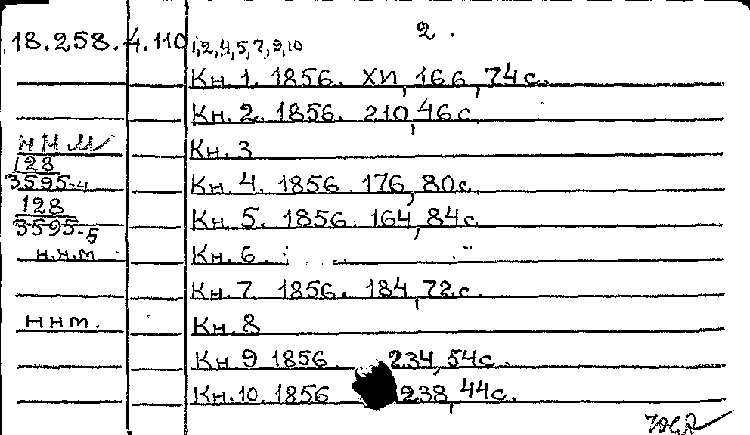 2.
18.258.4.110 1,2,4,5,7,9,10
Кн. 1. 1856. XII, 166, 74 с.
Кн. 2. 1856. 210, 46 с.
ННМ Кн. 3
128
3595-4 Кн. 4. 1856 176, 80 с.
128
3595-5 Кн. 5. 1856. 164, 84 с.
н.н.м Кн. 6.
Кн. 7 1856. 184, 72 с.
ннм. Кн. 8
Кн. 9 1856. 234, 54 с.
Кн. 10. 1856 238, 44 с.